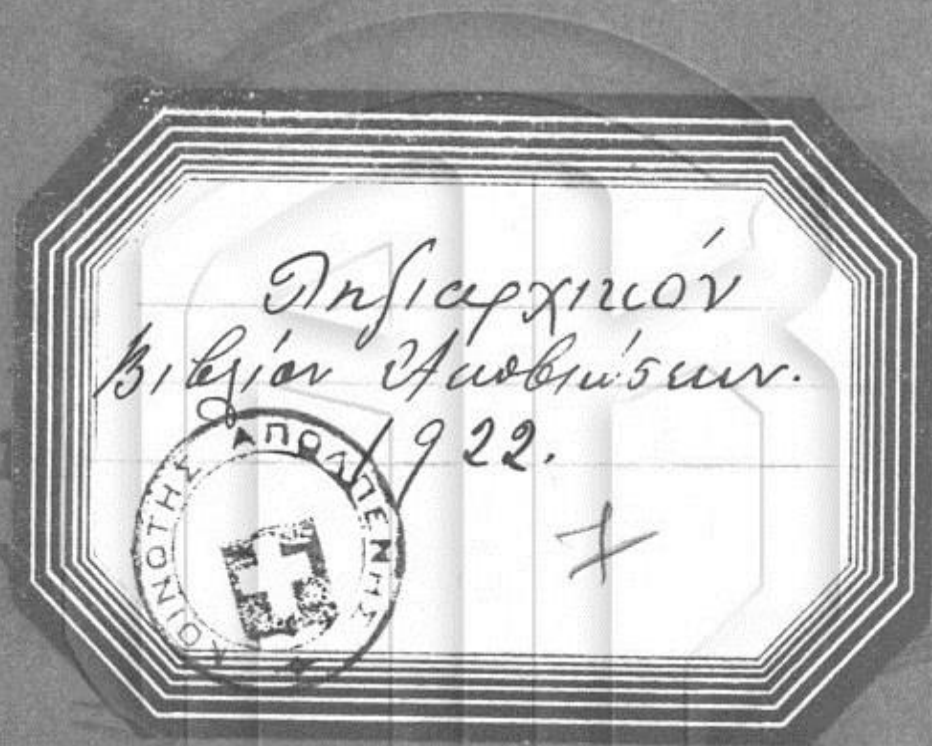 Ληξιαρχικόν
Βιβλίον Αποβιώσεων.
1922.
ΚΟΙΝΟΤΗΣ ΑΠΟΛΠΕΝΗΣ